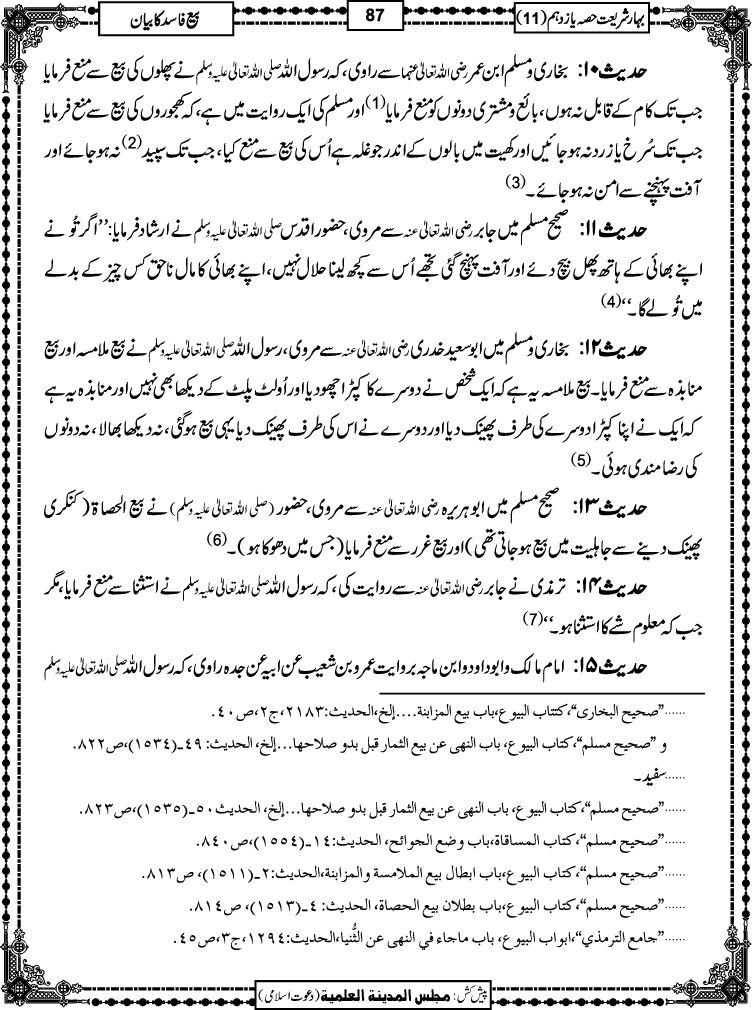 بہار شریعت حصہ یازدہم (11)
87
بیع فاسد کا بیان
حدیث ۱۰: بخاری و مسلم ابن عمر رضی اللہ تعالیٰ عنہما سے راوی، کہ رسول اللہ صلی اللہ تعالیٰ علیہ وسلم نے پھلوں کی بیع سے منع فرمایا
جب تک کام کے قابل نہ ہوں، بائع و مشتری دونوں کو منع فرمایا(1) اور مسلم کی ایک روایت میں ہے، کہ کھجوروں کی بیع سے منع فرمایا
جب تک سُرخ یا زرد نہ ہو جائیں اور کھیت میں بالوں کے اندر جو غلہ ہے اُس کی بیع سے منع کیا، جب تک سپید(2) نہ ہو جائے اور
آفت پہنچنے سے امن نہ ہو جائے۔(3)
حدیث ۱۱: صحیح مسلم میں جابر رضی اللہ تعالیٰ عنہ سے مروی، حضور اقدس صلی اللہ تعالیٰ علیہ وسلم نے ارشاد فرمایا: ’’اگر تُو نے
اپنے بھائی کے ہاتھ پھل بیچ دئے اور آفت پہنچ گئی تجھے اُس سے کچھ لینا حلال نہیں، اپنے بھائی کا مال ناحق کس چیز کے بدلے
میں تُو لے گا۔‘‘(4)
حدیث ۱۲: بخاری و مسلم میں ابوسعید خدری رضی اللہ تعالیٰ عنہ سے مروی، رسول اللہ صلی اللہ تعالیٰ علیہ وسلم نے بیع ملامسہ اور بیع
منابذہ سے منع فرمایا۔ بیع ملامسہ یہ ہے کہ ایک شخص نے دوسرے کا کپڑا چھو دیا اور اُولٹ پلٹ کے دیکھا بھی نہیں اور منابذہ یہ ہے
کہ ایک نے اپنا کپڑا دوسرے کی طرف پھینک دیا اور دوسرے نے اس کی طرف پھینک دیا یہی بیع ہوگئی، نہ دیکھا بھالا، نہ دونوں
کی رضامندی ہوئی۔(5)
حدیث ۱۳: صحیح مسلم میں ابوہریرہ رضی اللہ تعالیٰ عنہ سے مروی، حضور (صلی اللہ تعالیٰ علیہ وسلم) نے بیع الحصاة (کنکری
پھینک دینے سے جاہلیت میں بیع ہو جاتی تھی) اور بیع غرر سے منع فرمایا (جس میں دھوکا ہو)۔(6)
حدیث ۱۴: ترمذی نے جابر رضی اللہ تعالیٰ عنہ سے روایت کی، کہ رسول اللہ صلی اللہ تعالیٰ علیہ وسلم نے استثنا سے منع فرمایا، مگر
جب کہ معلوم شے کا استثنا ہو۔‘‘(7)
حدیث ۱۵: امام مالک و ابوداود و ابن ماجہ بروایت عمرو بن شعیب عن ابیہ عن جدہ راوی، کہ رسول اللہ صلی اللہ تعالیٰ علیہ وسلم
......”صحيح البخاری“،کتتاب البيوع،باب بيع المزابنة....إلخ،الحديث:٢١٨٣،ج٢،ص٤٠.
و ”صحيح مسلم“،کتاب البيوع، باب النهی عن بيع الثمار قبل بدو صلاحها...إلخ، الحديث: ٤٩ـ(١٥٣٤)،ص٨٢٢.
......سفید۔
......”صحيح مسلم“،کتاب البيوع، باب النهی عن بيع الثمار قبل بدو صلاحها...إلخ، الحديث٥٠ـ(١٥٣٥)،ص٨٢٣.
......”صحيح مسلم“،کتاب المساقاة،باب وضع الجوائح، الحديث:١٤ـ(١٥٥٤)،ص٨٤٠.
......”صحيح مسلم“، کتاب البيوع،باب ابطال بيع الملامسة والمزابنة،الحديث:٢ـ(١٥١١)، ص٨١٣.
......”صحيح مسلم“، کتاب البيوع،باب بطلان بيع الحصاة، الحديث: ٤ـ(١٥١٣)، ص٨١٤.
......”جامع الترمذي“،ابواب البيوع، باب ماجاء في النهی عن الثُّنيا،الحديث:١٢٩٤،ج٣،ص٤٥.
پیش کش: مجلس المدینة العلمیة (دعوت اسلامی)